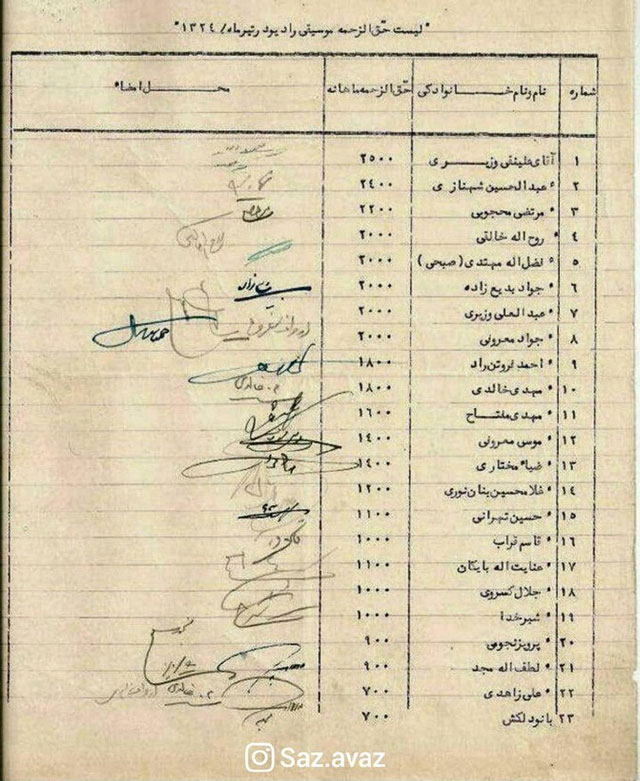 "لیست حقّ الزحمه موسیقی رادیو در تیرماه / ۱۳۲۴"
شماره نام و نام خانوادگی حقّ الزحمه ماهانه محل امضاء
۱ آقای علینقی وزیری ۲۵۰۰
۲ " عبدالحسین شهنازی ۲۴۰۰
۳ " مرتضی محجوبی ۲۲۰۰
۴ " روح اله خالقی ۲۰۰۰
۵ " فضل اله مهتدی (صبحی) ۲۰۰۰
۶ " جواد بدیع زاده ۲۰۰۰
۷ " عبدالعلی وزیری ۲۰۰۰
۸ " جواد معروفی ۲۰۰۰
۹ " احمد فروتن راد ۱۸۰۰
۱۰ " مهدی خالدی ۱۸۰۰ م. خالدی
۱۱ " مهدی مفتاح ۱۶۰۰
۱۲ " موسی معروفی ۱۴۰۰
۱۳ " ضیاء مختاری ۱۴۰۰
۱۴ " غلامحسین بنان نوری ۱۲۰۰
۱۵ " حسین تهرانی ۱۱۰۰
۱۶ " قاسم قراب ۱۰۰۰
۱۷ " عنایت اله بایکان ۱۱۰۰
۱۸ " جلال کسروی ۱۰۰۰
۱۹ " شیرخدا ۱۰۰۰
۲۰ " پرویز نجومی ۹۰۰
۲۱ " لطف اله مجد ۹۰۰
۲۲ " علی زاهدی ۷۰۰ م. خالدی
۲۳ بانو دلکش ۷۰۰
Saz.avaz